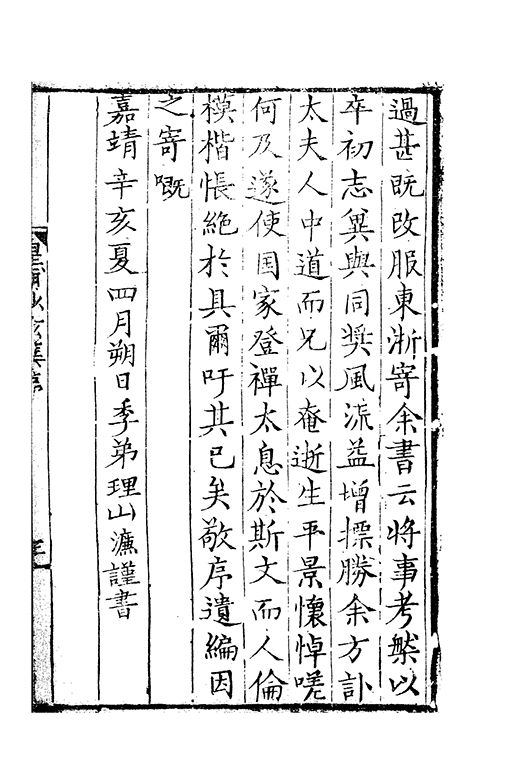 過甚既改服東浙寄余書云將事考槃以
卒初志兾與同奬風流益增摽勝余方訃
太夫人中道而兄以奄逝生平景懷悼嘆
何及遂使国家登禪太息於斯文而人倫
模楷悵絶於具爾吁其已矣敬序遺編因
之寄嘅
嘉靖辛亥夏四月朔日季弟理山濂謹書
皇甫
集序